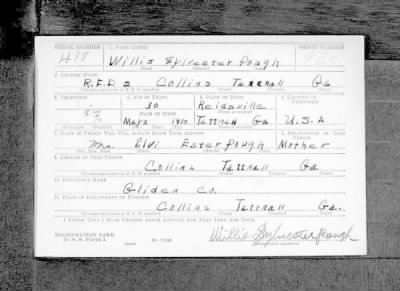 SERIAL NUMBER 1. NAME (Print) ORDER NUMBER
418 Willis Sylvester Pough
2. ADDRESS (Print)
R.F.D 2 Collins Tattnall Ga
3. TELEPHONE 4. AGE IN YEARS 5. PLACE OF BIRTH 6. COUNTRY OF CITIZENSHIP
30 Reidsville
1910 Tattnall Ga U.S.A
7. NAME OF PERSON WHO WILL ALWAYS KNOW YOUR ADDRESS 8. RELATIONSHIP OF THAT PERSON
Mrs. Elvi Ester Pough Mother
9. ADDRESS OF THAT PERSON
Collins Tattnall Ga
10. EMPLOYER'S NAME
Gliden Co.
11. PLACE OF EMPLOYMENT OR BUSINESS
Collins Tattnall Ga.
I AFFIRM THAT I HAVE VERIFIED ABOVE ANSWERS AND THAT THEY ARE TRUE.
REGISTRATION CARD
D. S. S. Form 1 Willis Sylvester Pough